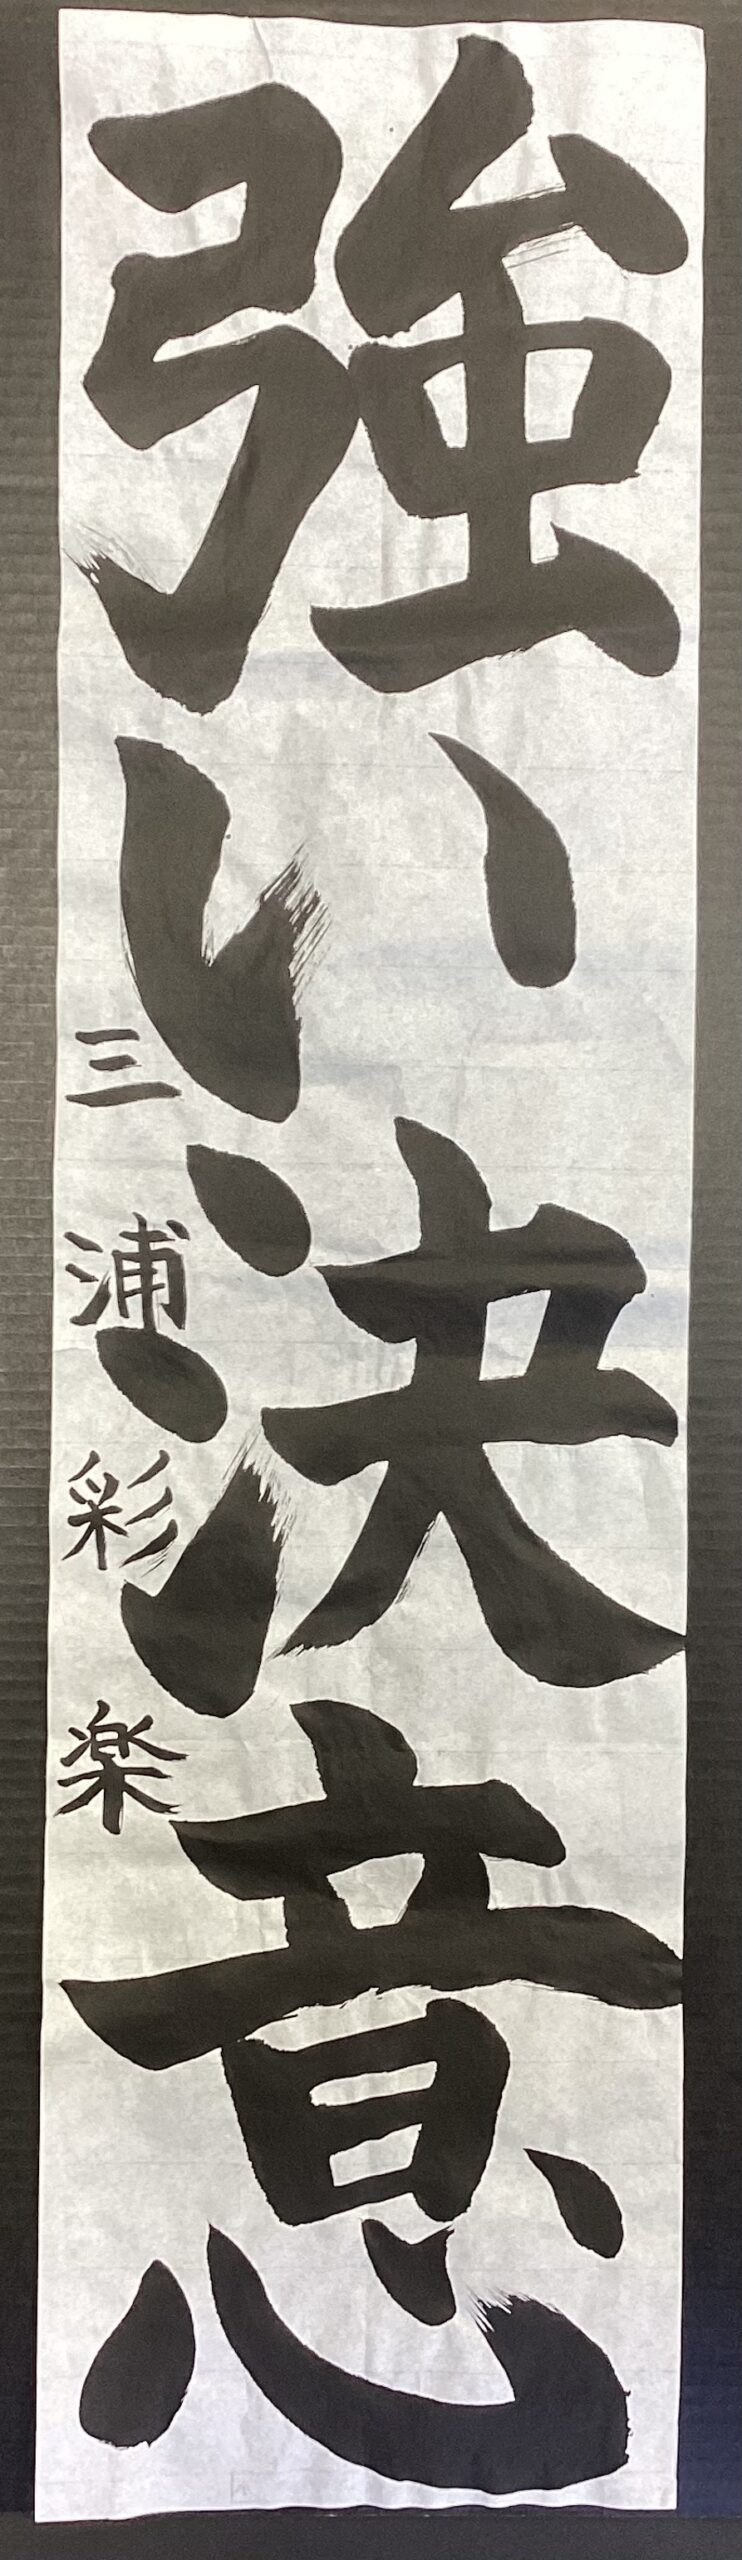 強い決意
三浦彩楽